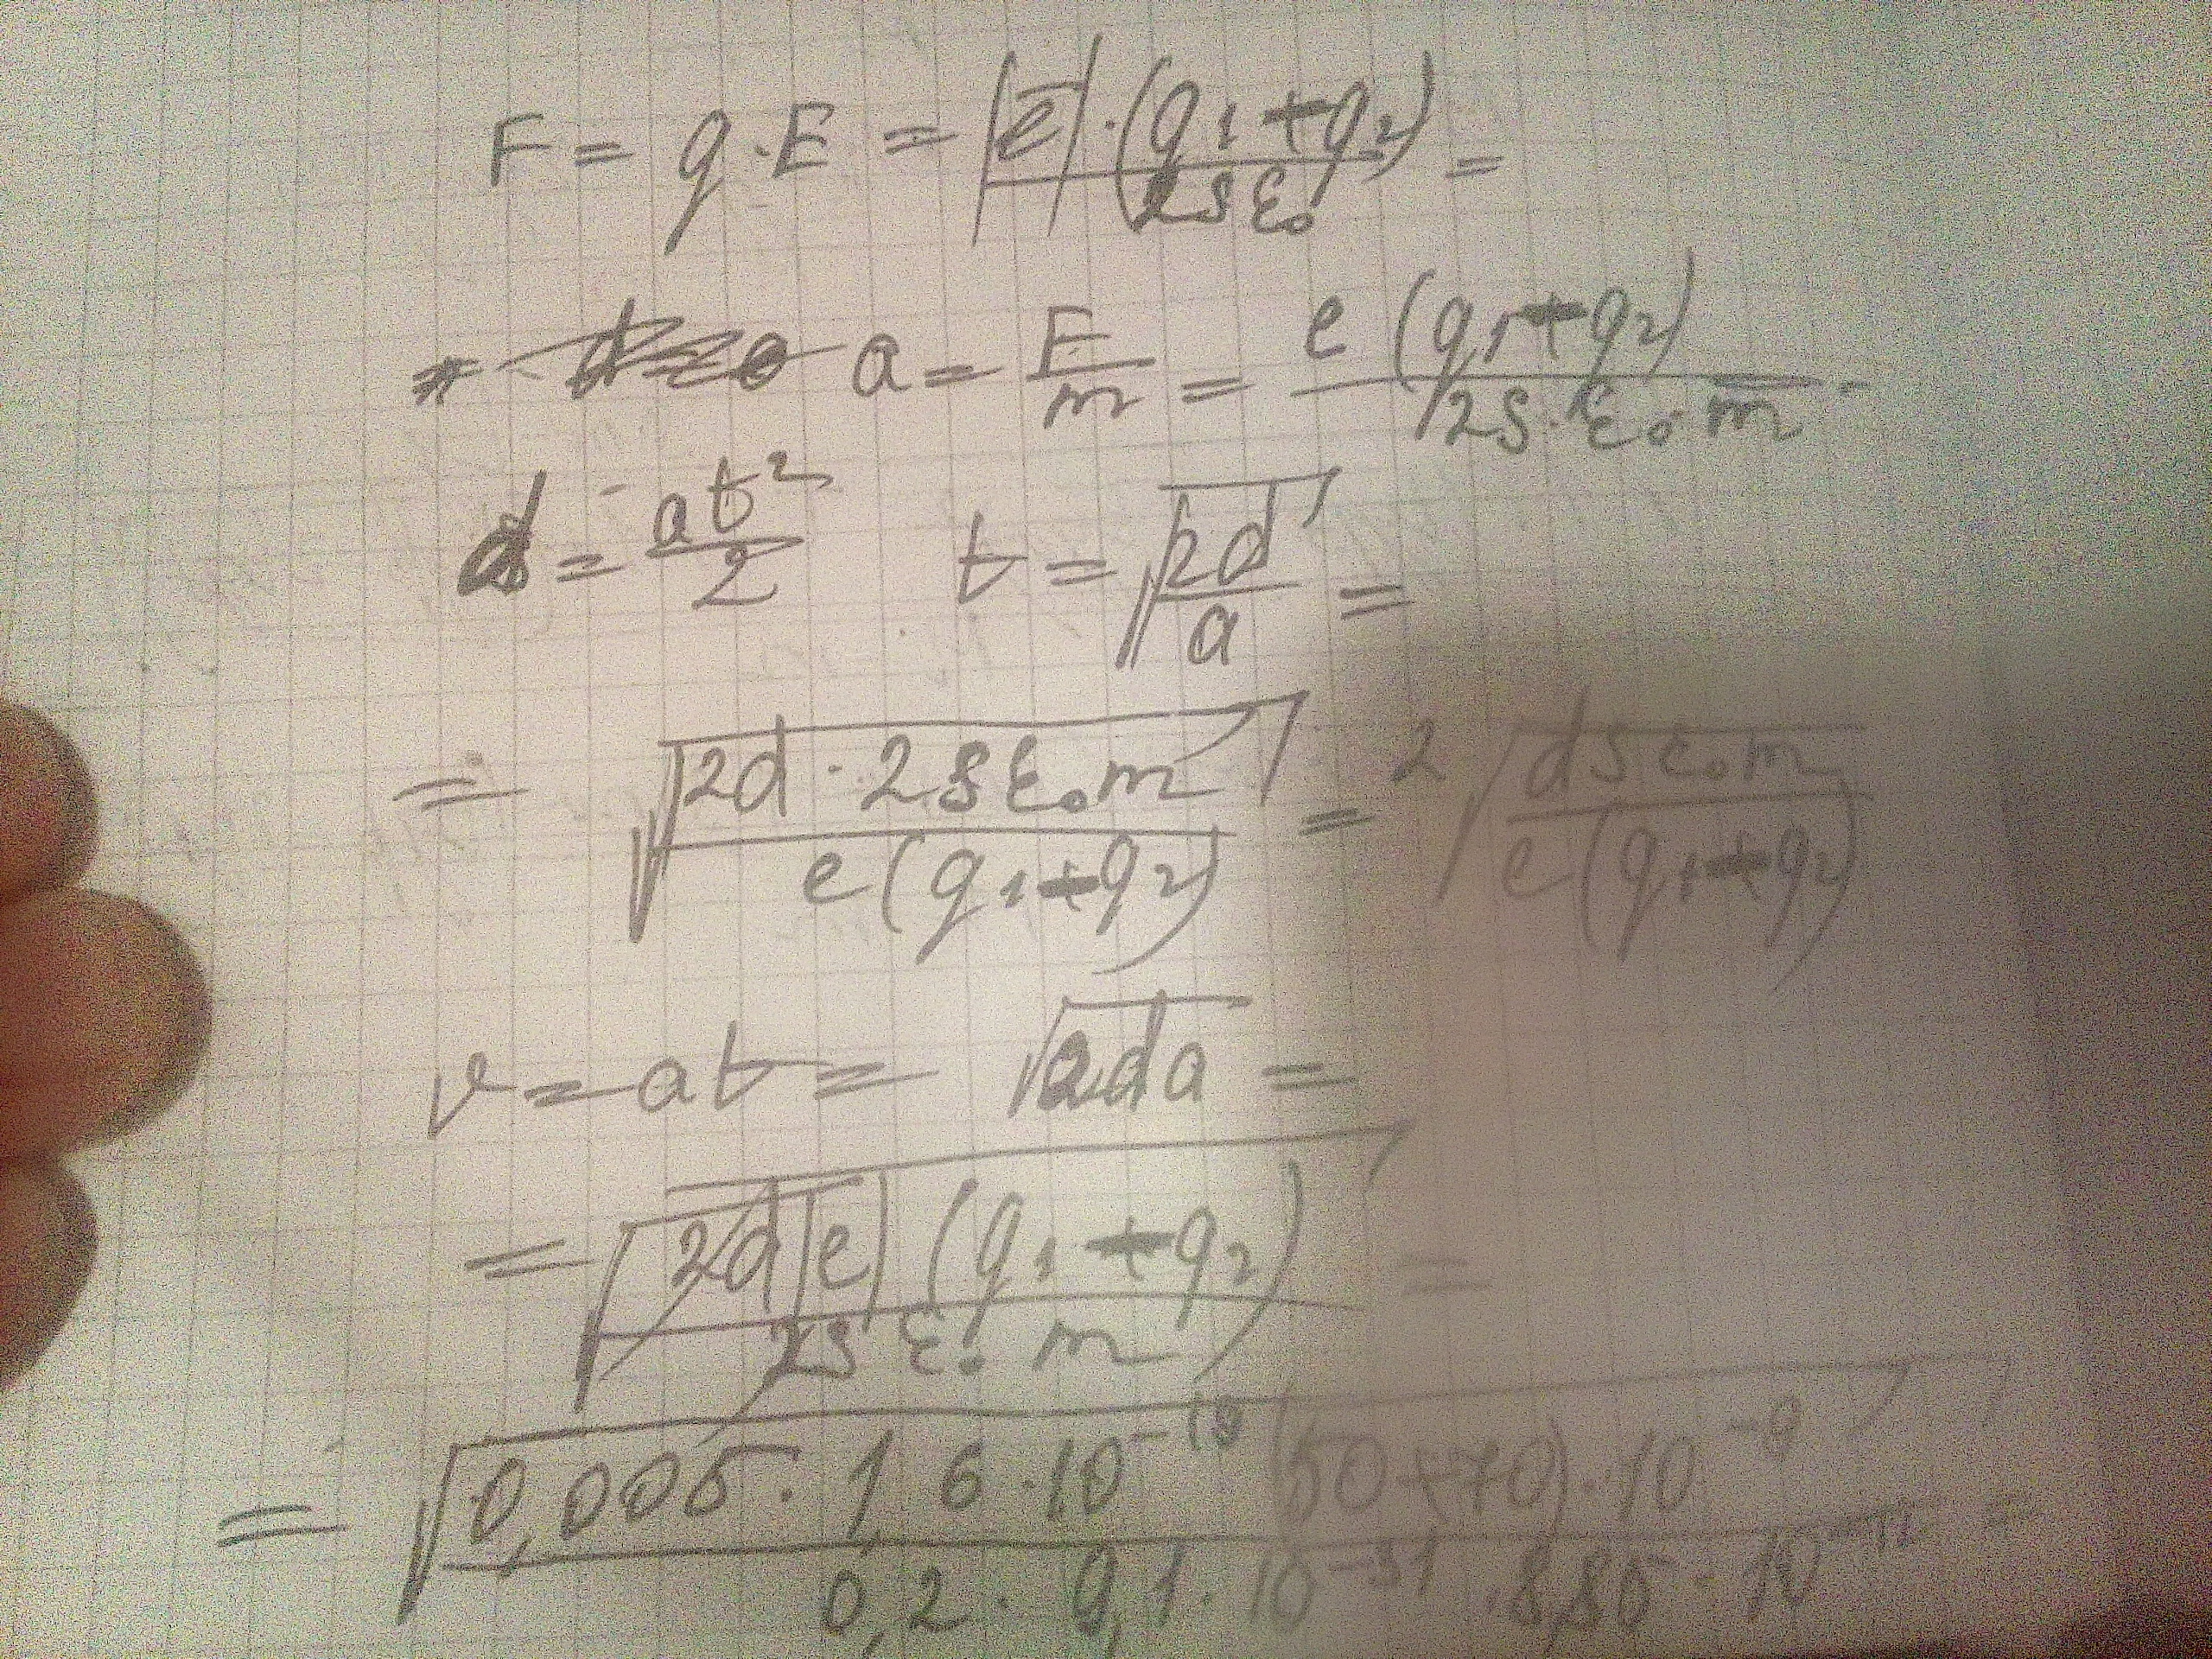 F = q·E = |e|·(q₁+q₂) / 2Sε₀ =
a = F/m = e(q₁+q₂) / 2S·ε₀m
d = at²/2   t = √(2d/a) =
= √(2d·2Sε₀m / e(q₁+q₂)) = 2√(dSε₀m / e(q₁+q₂))
v = at = √(2da) =
= √(2d|e|(q₁+q₂) / 2Sε₀m) =
= √(0,005·1,6·10⁻¹⁹(50+70)·10⁻⁹ / 0,2·9,1·10⁻³¹·8,85·10⁻¹²) =